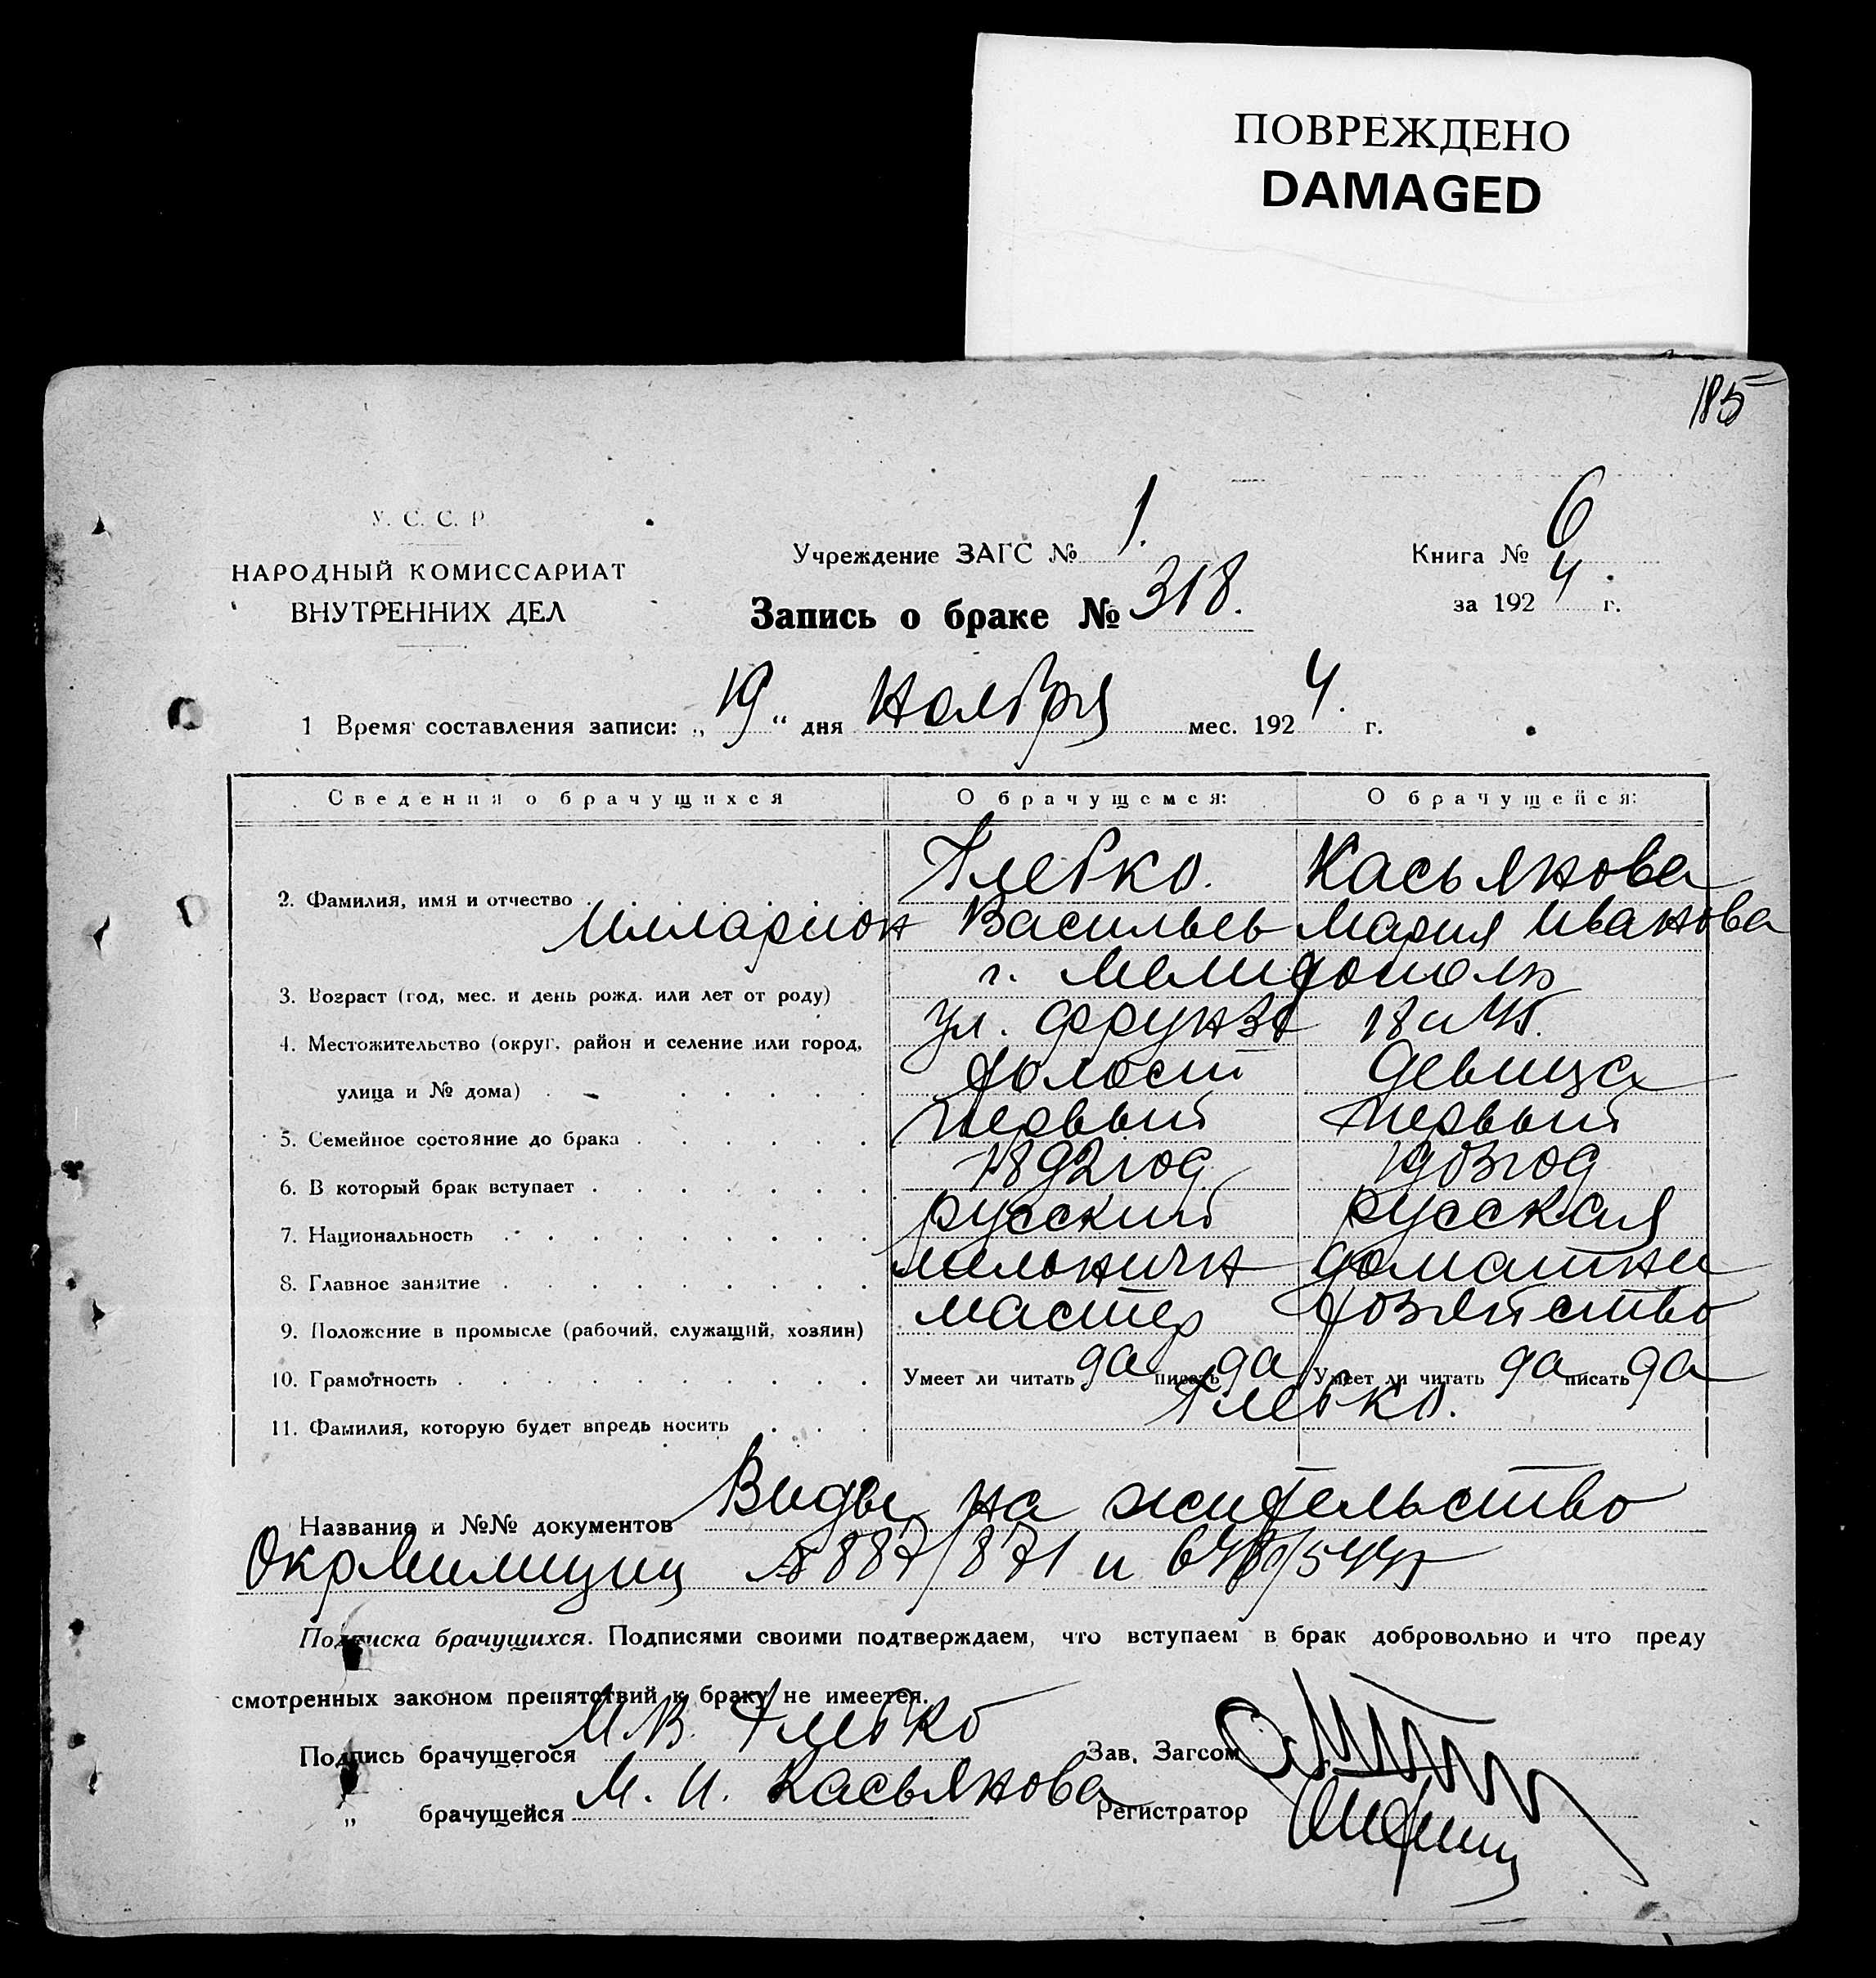 ПОВРЕЖДЕНО
DAMAGED
185
У. С. С. Р.
НАРОДНЫЙ КОМИССАРИАТ
ВНУТРЕННИХ ДЕЛ
Учреждение ЗАГС № 1.
Запись о браке № 318.
Книга № 6
за 1924 г.
1 Время составления записи: „19“ дня Ноября мес. 1924. г.
Сведения о брачущихся О брачущемся: О брачущейся:
Глебко. Касьянова
2. Фамилия, имя и отчество
Илларион Васильев Мария Иванова
г. Мелитополь
3. Возраст (год, мес. и день рожд. или лет от роду)
ул. Фрунзе 18
4. Местожительство (округ, район и селение или город,
холост девица
улица и № дома)
первый первый
5. Семейное состояние до брака
1892 год 1903 год
6. В который брак вступает
русский русская
7. Национальность
домашнее
8. Главное занятие
мастер хозяйство
9. Положение в промысле (рабочий, служащий, хозяин)
10. Грамотность Умеет ли читать да писать да Умеет ли читать да писать да
Глебко.
11. Фамилия, которую будет впредь носить
Виды на жительство
Название и №№ документов
ОкрМилиции № 887/871 и
Подписка брачущихся. Подписями своими подтверждаем, что вступаем в брак добровольно и что преду
смотренных законом препятствий к браку не имеется.
Подпись брачущегося И. В. Глебко Зав. Загсом
„ брачущейся М. И. Касьянова Регистратор